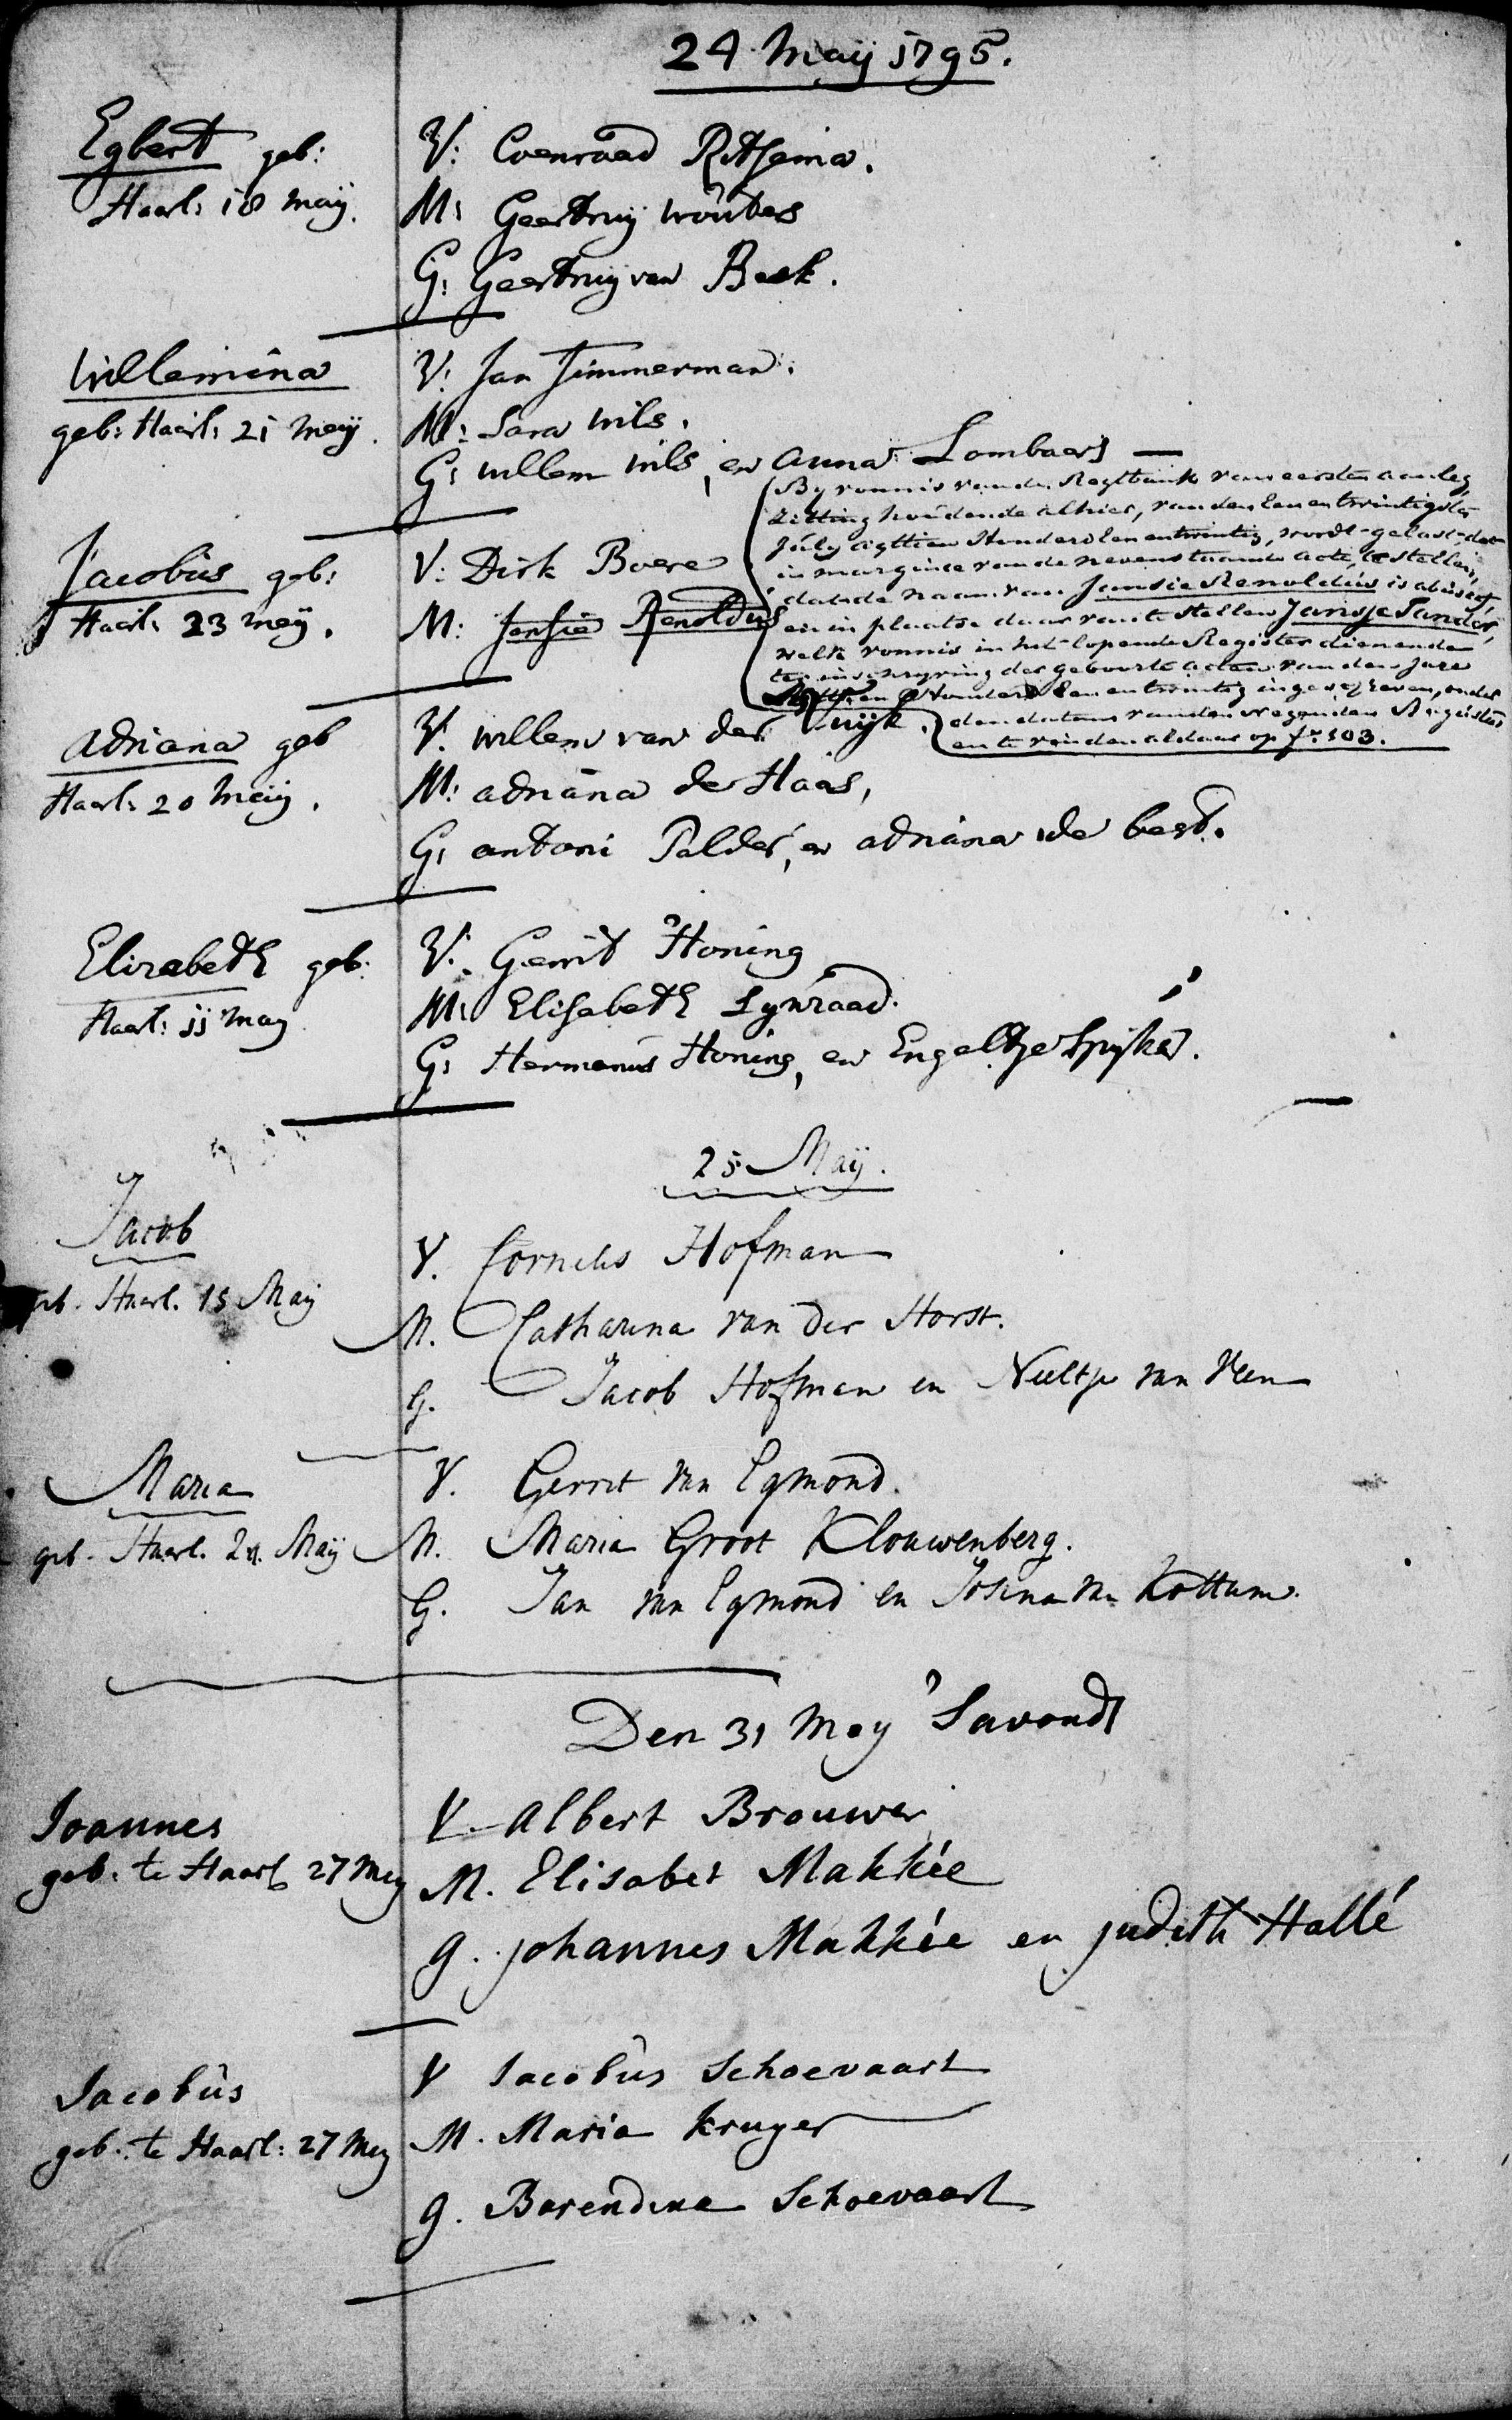 24 Maij 1795.
Egbert geb:
Haarl: 18 maij.
V: Coenraad Ritsema.
M: Geertruij wouters
G: Geertruij van Beek.
Willemina
geb: Haarl: 21 meij.
V: Jan Timmerman.
M: Sara wils.
G: willem wils, en anna Lombaers
By vonnis van de Regtbank van eersten aanleg
zitting houdende alhier, van den Een en twintigste
July agttien Honderd een en twintig, wordt gelast dan
in margine van de nevenstaande acte, te stellen,
dat de naam van Jansie Renoldus is abusief,
en in plaatse daar van te stellen Jansje Sander,
welk vonnis in het lopende Register dienende
ter inschryving der geboorte acten van den Jare
Agttien Honderd Een en twintig ingeschreven, onder
den datum van den negenden Augustus
en te vinden aldaar op f° 103.
Jacobus geb:
Haarl: 23 meij.
V: Dirk Boere
M: Jansie Renoldus
Adriana geb
Haarl: 20 Meij.
V. willem van der Cuijk.
M: adriana de Haas,
G: antoni Palder, en adriana de best.
Elizabeth geb:
Haarl: 11 may
V: Gerrit Honing
M: Elisabeth Lynraad.
G: Hermanus Honing, en Engeltje Spijker.
25 Maij.
Jacob
geb. Haarl. 15 Maij
V. Cornelis Hofman
M. Catharina van der Horst.
G. Jacob Hofman en Neeltje van Veen
Maria
geb. Haarl. Maij
V. Gerrit van Egmond.
M. Maria Groot Klouwenberg.
G. Jan van Egmond en Josina van Kottum.
Den 31 Mey 'Savonds
Joannes
geb. te Haarl 27 Mey
V. Albert Brouwer
M. Elisabet Makkée
g. Johannes Makkée en Judith Hallé
Jacobus
geb. te Haarl: 27 Mey
V Jacobus Schoevaart
M. Maria Kruyer
g. Barendina Schoevaart